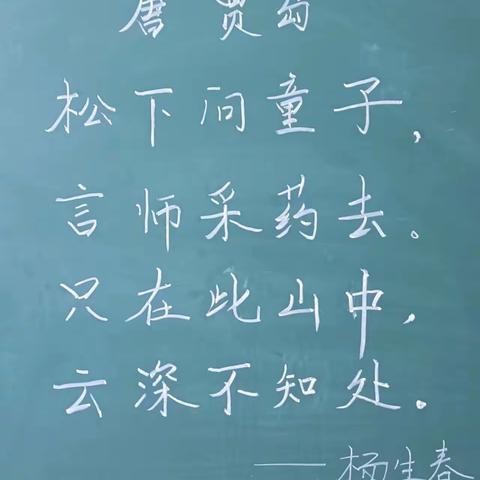 唐 贾岛
松下问童子,
言师采药去。
只在此山中,
云深不知处。
——杨生春